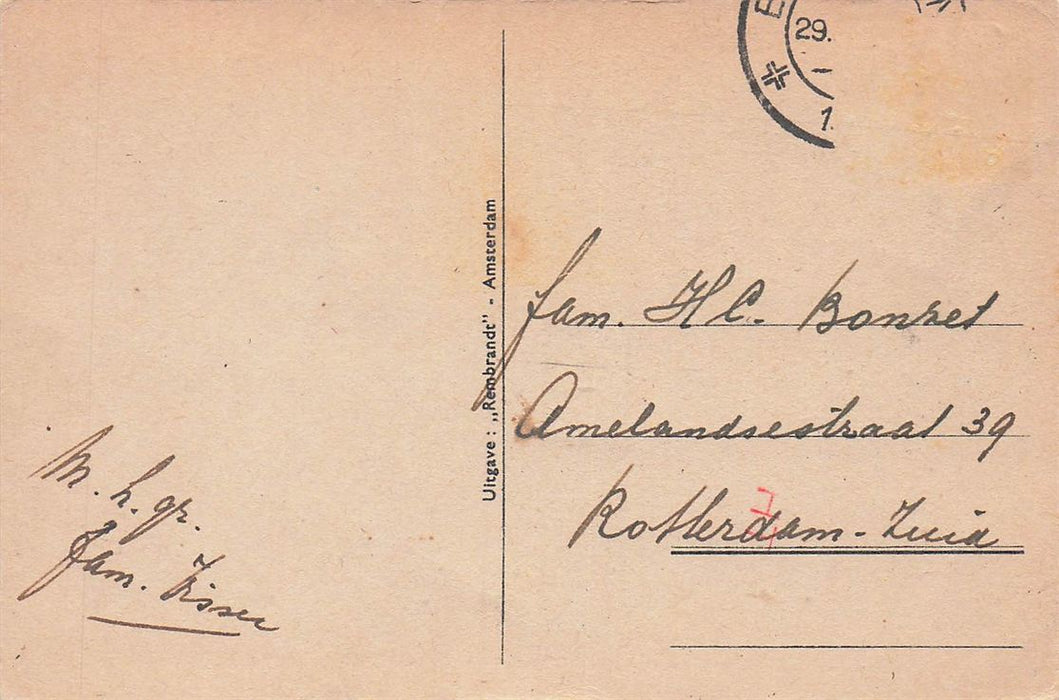 29.
1.
Uitgave: „Rembrandt" - Amsterdam
fam. H C. Bonket
Amelandsestraat 39
Rotterdam-Zuid
M. h. gr.
fam. Visser